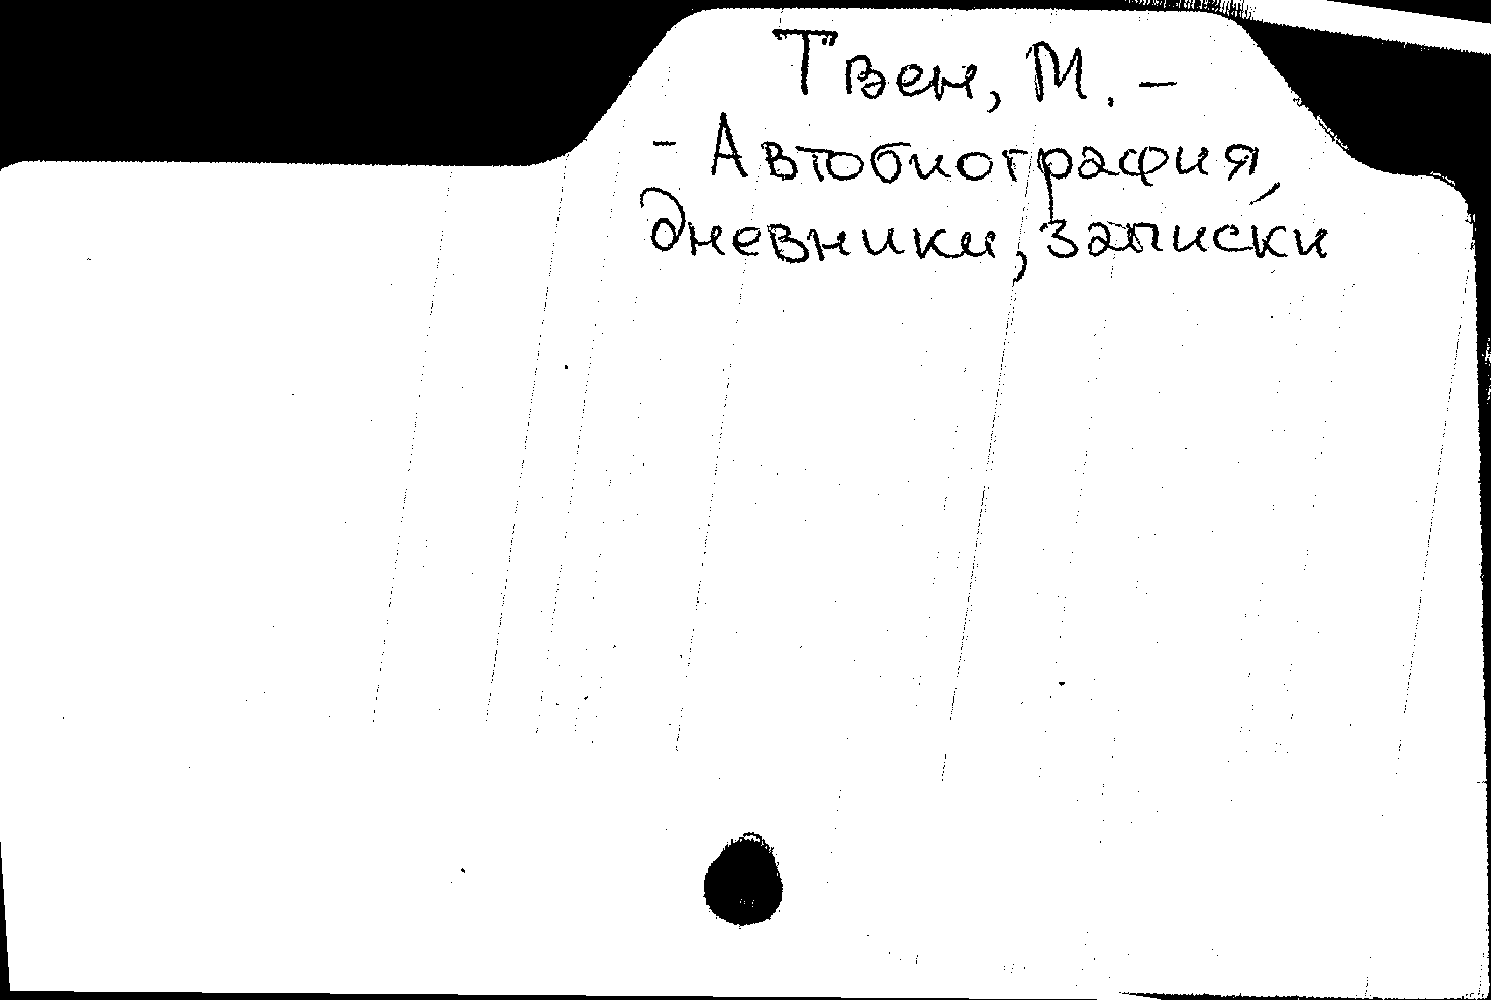 Твен, М. –
- Автобиография,
дневники, записки